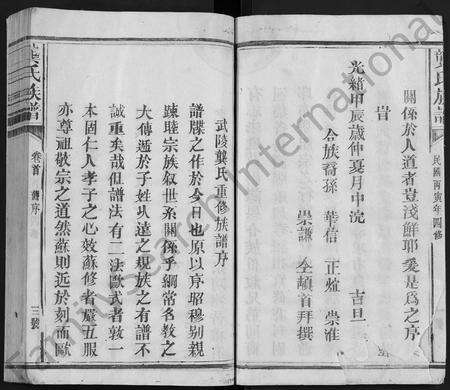 龔氏族譜
民國丙寅年四修
關係於人道者豈淺鮮耶爰是為之序
旹
光緒甲辰歲仲夏月中浣 吉旦
合族裔孫 華信 正爐 崇淮
崇謙 仝頓首拜撰
武陵龔氏重修族譜序
譜牒之作於今日也原以序昭穆別親
疎睦宗族叙世系關係乎綱常名教之
大傳遞於子姓夐遠之規族之有譜不
誠重矣哉但譜法有二法歐式者敦一
本固仁人孝子之心效蘇修者嚴五服
亦尊祖敬宗之道然蘇則近於刻而歐
龔氏族譜
卷首 舊序
三號
FamilySearch International